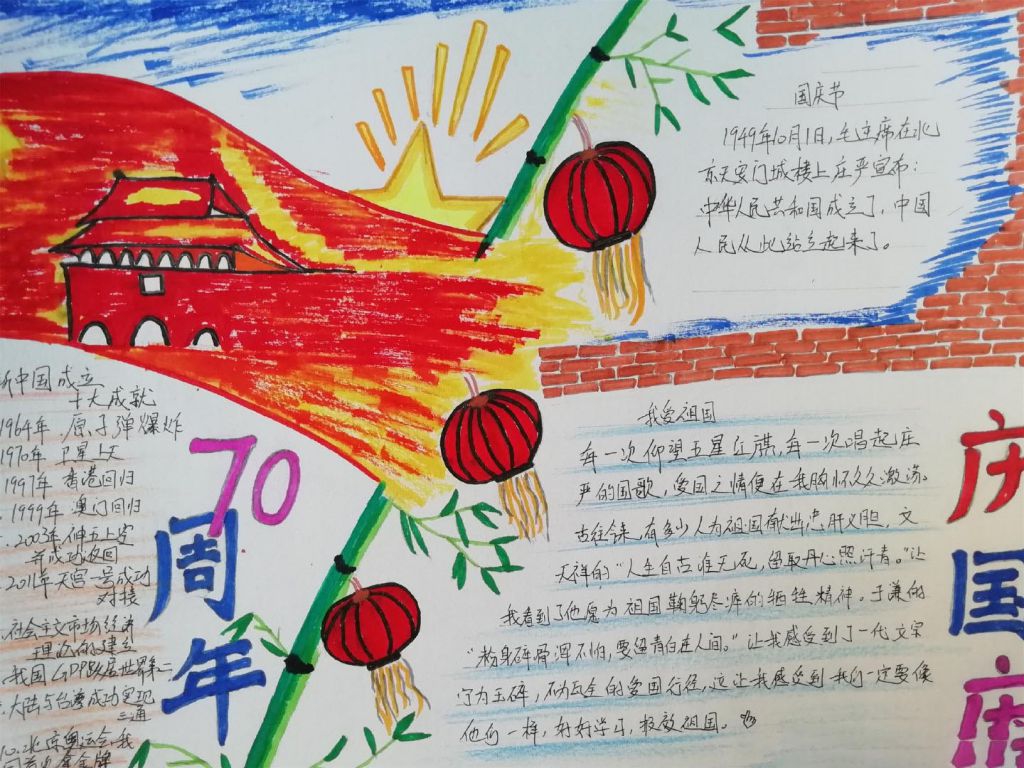 国庆节
1949年10月1日，毛主席在北
京天安门城楼上庄严宣布：
中华人民共和国成立了，中国
人民从此站立起来了。
新中国成立
十大成就
1964年 原子弹爆炸
1970年 卫星上天
1997年 香港回归
1999年 澳门回归
2003年 神五上空
并成功返回
2011年天宫一号成功
对接
社会主义市场经济
理论的建立
我国GDP跃居世界第二
大陆与台湾成功实现
三通
10.北京奥运会，我
70
周
年
我爱祖国
每一次仰望五星红旗，每一次唱起庄
严的国歌，爱国之情便在我胸怀久久激荡.
古往今来，有多少人为祖国献出忠肝义胆，文
天祥的“人生自古谁无死，留取丹心照汗青。”让
我看到了他愿为祖国鞠躬尽瘁的牺牲精神。于谦的
“粉身碎骨浑不怕，要留青白在人间。”让我感受到了一代文宗
宁为玉碎，不为瓦全的爱国行径，这让我感受到我们一定要像
他们一样，好好学习，报效祖国。
庆
国
庆